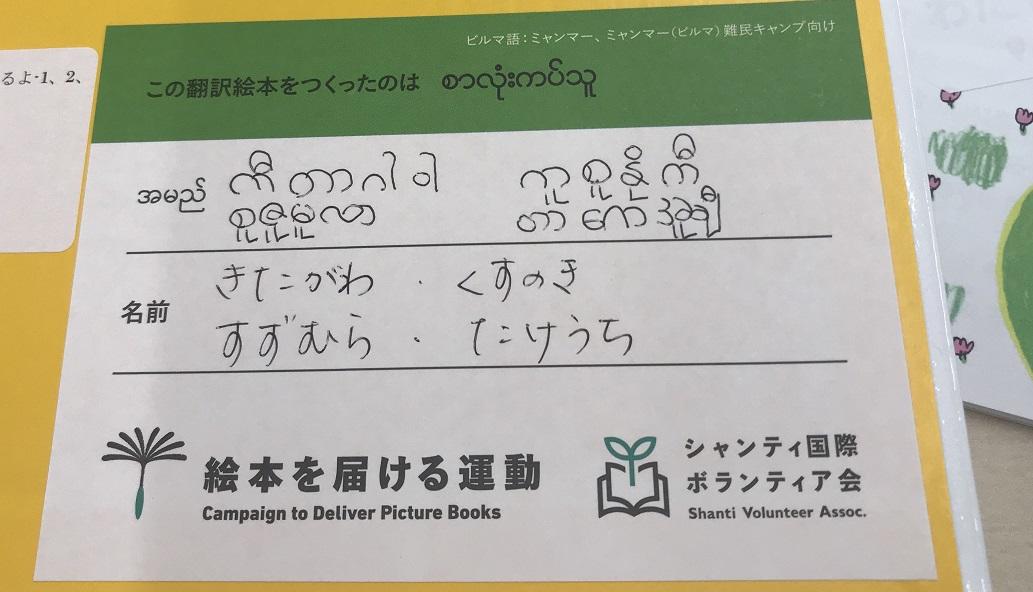 るよ・1、2、
ビルマ語：ミャンマー、ミャンマー（ビルマ）難民キャンプ向け
この翻訳絵本をつくったのは စာလုံးကပ်သူ
အမည် ကီ တာ ဂါ ဝါ ကု စု နို ကီ
စုဇုမူလာ တာ ကေ အုချီ
名前 きたがわ ・ くすのき
すずむら ・ たけうち
絵本を届ける運動
Campaign to Deliver Picture Books
シャンティ国際
ボランティア会
Shanti Volunteer Assoc.